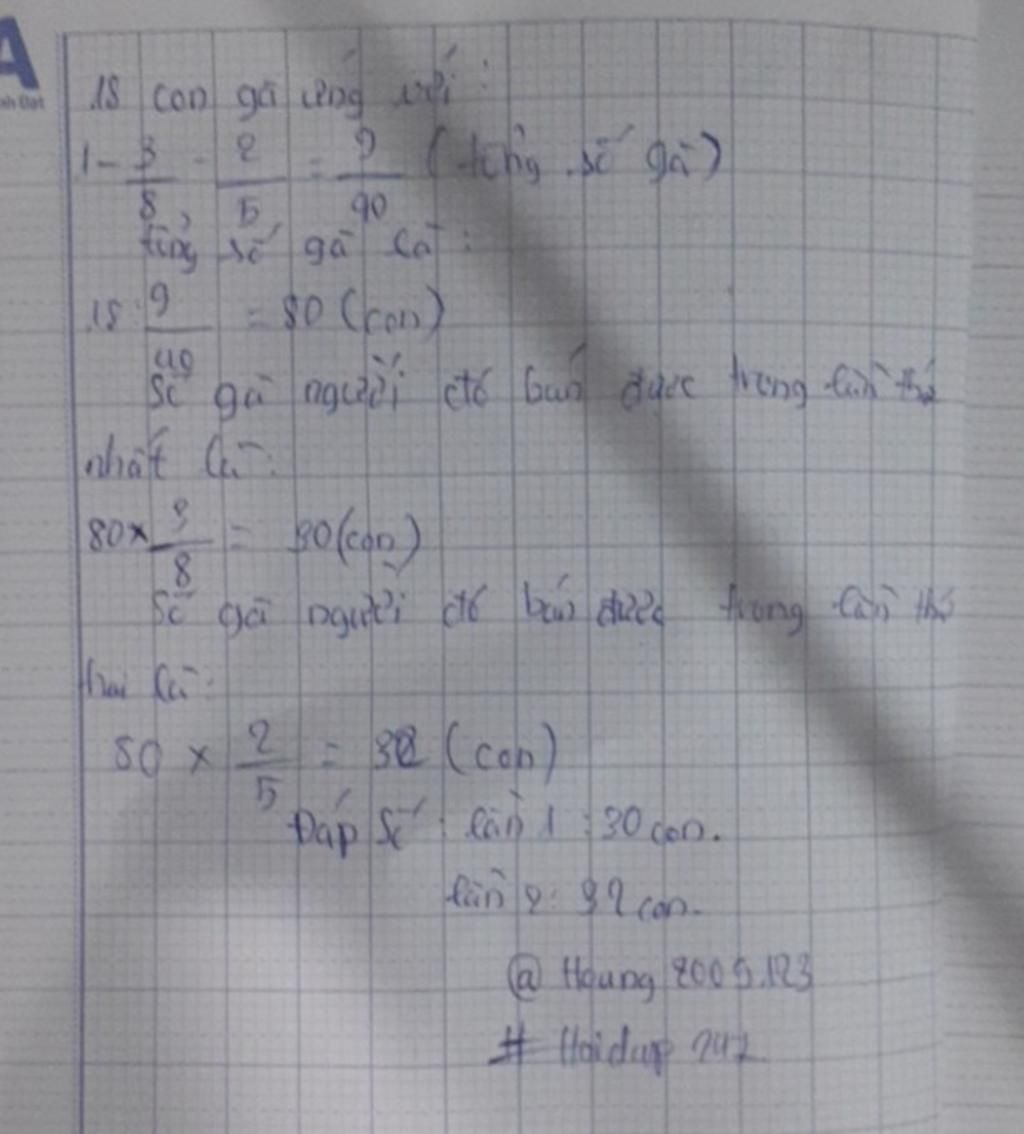 A
18 con gà ứng với:
1 - 3/8 - 2/5 = 9/40 (tổng số gà)
tổng số gà là:
18 : 9/40 = 80 (con)
Số gà người đó bán được trong lần thứ
nhất là:
80 × 3/8 = 30 (con)
Số gà người đó bán được trong lần thứ
hai là:
80 × 2/5 = 32 (con)
Đáp số: lần 1: 30 con.
lần 2: 32 con.
@ Hoang 2005.123
# Hoidap 247